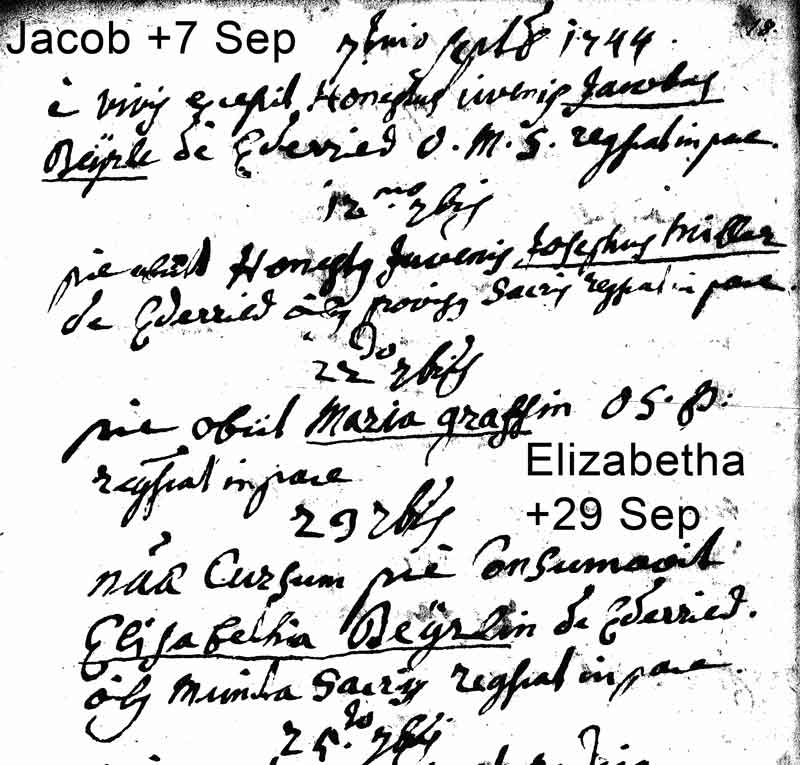 Jacob +7 Sep
7timo Septb 1744.
18.
è vivis excessit Honestus iuvenis Jacobus
Beÿrle de Ederried O. M. S. requiescat in pace.
12mo 7bris
pie obiit Honestus Juvenis Josephus Miller
de Ederried oibus provisus Sacris requiescat in pace.
22do 7bris
pie obiit Maria graffin O S. P.
requiescat in pace
Elizabetha
+29 Sep
29 7bris
Cursum pie Consumavit
Elisabetha Beÿrlin de Ederried.
oibus munita Sacris requiescat in pace.
25to 7bris